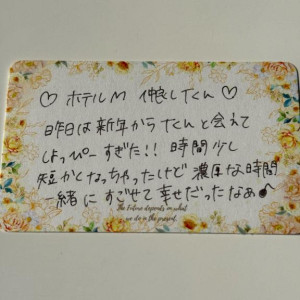 ♡ ホテルM 仲良してくん ♡
昨日は新年からてくんと会えて
しょっぴーすぎた!! 時間少し
短かくなっちゃったけど 濃厚な時間
一緒にすごせて幸せだったなぁ♪
The Future depends on what
we do in the present.